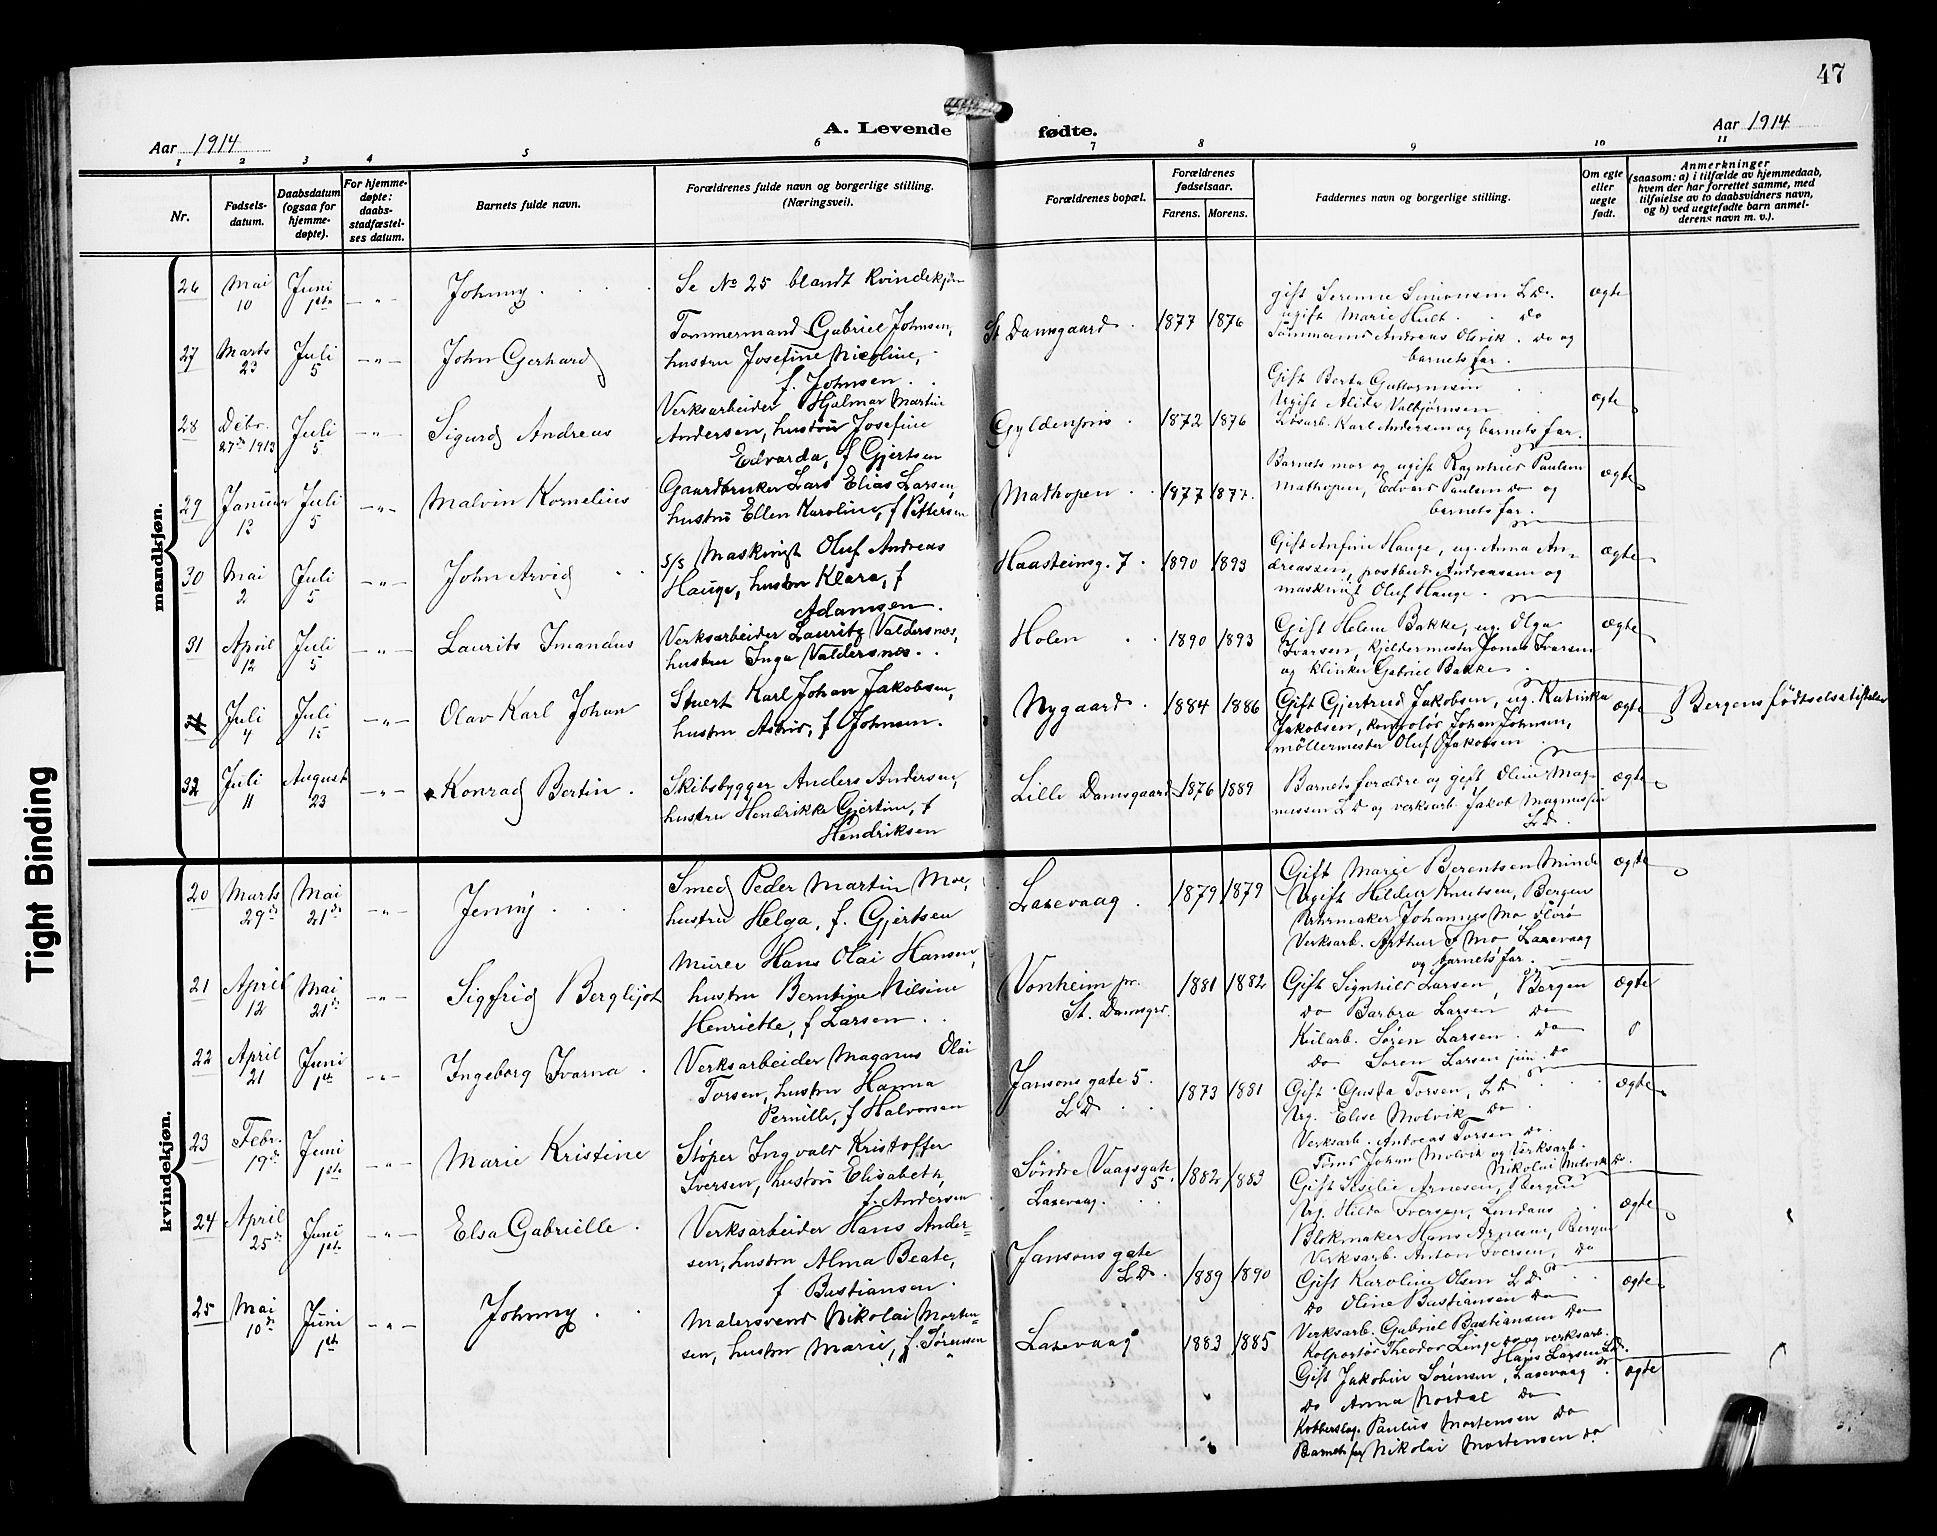 47
A. Levende fødte.
Aar 1914
Aar 1914
1 2 3 4 5 6 7 8 9 10 11
Nr.
Fødsels-
datum.
Daabsdatum
(ogsaa for
hjemme-
døpte).
For hjemme-
døpte:
daabs-
stadfæstel-
ses datum.
Barnets fulde navn.
Forældrenes fulde navn og borgerlige stilling.
(Næringsvei).
Forældrenes bopæl.
Forældrenes
fødselsaar.
Farens. Morens.
Faddernes navn og borgerlige stilling.
Om egte
eller
uegte
født.
Anmerkninger
(saasom: a) i tilfælde av hjemmedaab,
hvem der har forrettet samme, med
tilføielse av to daabsvidners navn,
og b) ved uegtefødte barn anmel-
derens navn m. v.).
mandkjøn.
26 Mai 10 Juni 1ste -"- Johnny
Se No 25 blandt Kvindekjøn
27 Marts 23 Juli 5 -"- John Gerhard
Tømmermand Gabriel Johnsen,
hustru Josefine Nicoline,
f. Johnsen.
St Damsgaard 1877 1876
gift Serenne Simonsen L D.
ugift Marie Hult do
Tømmermand Andreas Olsvik do og
barnets far.
ægte
28 Debr. 27de 1913 Juli 5 -"- Sigurd Andreas
Verksarbeider Hjalmar Martin
Andersen, hustru Josefine
Edvarda, f Gjertsen
Gyldenpris 1872 1876
Gift Berta Guttormsen
Ugift Alida Valbjørnsen
Løsarb. Karl Andersen og barnets far.
ægte
29 Januar 12 Juli 5 -"- Malvin Kornelius
Gaardbruker Lars Elias Larsen,
hustru Ellen Karoline, f Pettersen
Mathopen 1877 1877.
Barnets mor og ugift Ragnhild Paulsen
Mathopen, Edvard Paulsen do og
barnets far.
ægte
30 Mai 2 Juli 5 -"- John Arvid
S/S Maskinist Oluf Andreas
Hauge, hustru Klara, f
Adamsen.
Haasteinsg. 7 1890 1893
Gift Anfine Hauge, ug. Anna An-
dreassen, postbud Andreassen og
maskinist Oluf Hauge.
ægte
31 April 12 Juli 5 -"- Laurits Imandus
Verksarbeider Lauritz Valdersnes,
hustru Inga Valdersnes.
Holen 1890 1893
Gift Helene Bakke, ug. Olga
Ivarsen, kjeldermester Jonas Ivarsen
og klinker Gabriel Bakke.
ægte
Juli 4 Juli 15 -"- Olav Karl Johan
Stuert Karl Johan Jakobsen,
hustru Astrid, f Johnsen.
Nygaard 1884 1886
Gift Gjertrud Jakobsen, ug. Katinka
Jakobsen, kontrolør Johan Johnsen,
møllermester Oluf Jakobsen
ægte
Bergens fødselsstiftelse
32 Juli 11 August 23 -"- Konrad Bertin.
Skibsbygger Anders Andersen,
hustru Hendrikke Gjertine, f
Hendriksen
Lille Damsgaard 1876 1889
Barnets forældre og gift Oline Mag-
nussen L D og verksarb. Jakob Magnussen
L D.
ægte
kvindekjøn.
20 Marts 29de Mai 21de -"- Jenny
Smed Peder Martin Moe,
hustru Helga, f. Gjertsen
Laxevaag 1879 1879
Gift Marie Berentsen Minde
Ugift Helder Knutsen, Bergen
Urmaker Johannes Mo
Verksarb. Arthur F Mo Laxevaag
og barnets far.
ægte
21 April 12 Mai 21de -"- Sigfrid Bergljot
Murer Hans Olai Hansen,
hustru Berntine Nilsine
Henriette, f Larsen
Vonheim pr.
St. Damsgrd. 1881 1882
Gift Signhild Larsen, Bergen
do Barbra Larsen do
Kularb. Søren Larsen do
do Søren Larsen jun. do
ægte
22 April 21 Juni 1ste -"- Ingeborg Ivarna
Verksarbeider Magnus Olai
Torsen, hustru Hanna
Pernille, f Halvorsen
Jansons gate 5.
L D 1873 1881
Gift Gusta Torsen, L D
Ug. Elise Molvik do
Verksarb. Andreas Torsen do
Tømr Johan Molvik og Verksarb.
Nikolai Molvik do.
ægte
23 Febr. 19de Juni 1ste -"- Marie Kristine
Støper Ingvald Kristoffer
Iversen, hustru Elisabeth,
f. Andersen
Søndre Vaagsgate
5.
Laxevaag. 1882 1883
Gift Sesilie Arnesen, Bergen
Ug. Hilda Iversen, Lindaas
Blokmaker Hans Arnesen, Bergen
Verksarb. Anton Iversen, do
ægte
24 April 25de Juni 1ste -"- Elsa Gabrielle
Verksarbeider Hans Ander-
sen, hustru Alma Beate,
f Bastiansen
Jansons gate
L D. 1889 1890
Gift Karoline Olsen L D
do Oline Bastiansen do
Verksarb. Gabriel Bastiansen do
Kolportør Theodor Linge do og verksarb.
Hans Larsen L D.
ægte
25 Mai 10de Juni 1ste -"- Johnny
Malersvend Nikolai Morten-
sen, hustru Marie, f. Sørensen
Laxevaag 1883 1885
Gift Jakobin Sørensen, Laxevaag
do Anna Nordal do
Kobberslag. Paulus Mortensen do
Barnets far Nikolai Mortensen do
ægte
Tight Binding